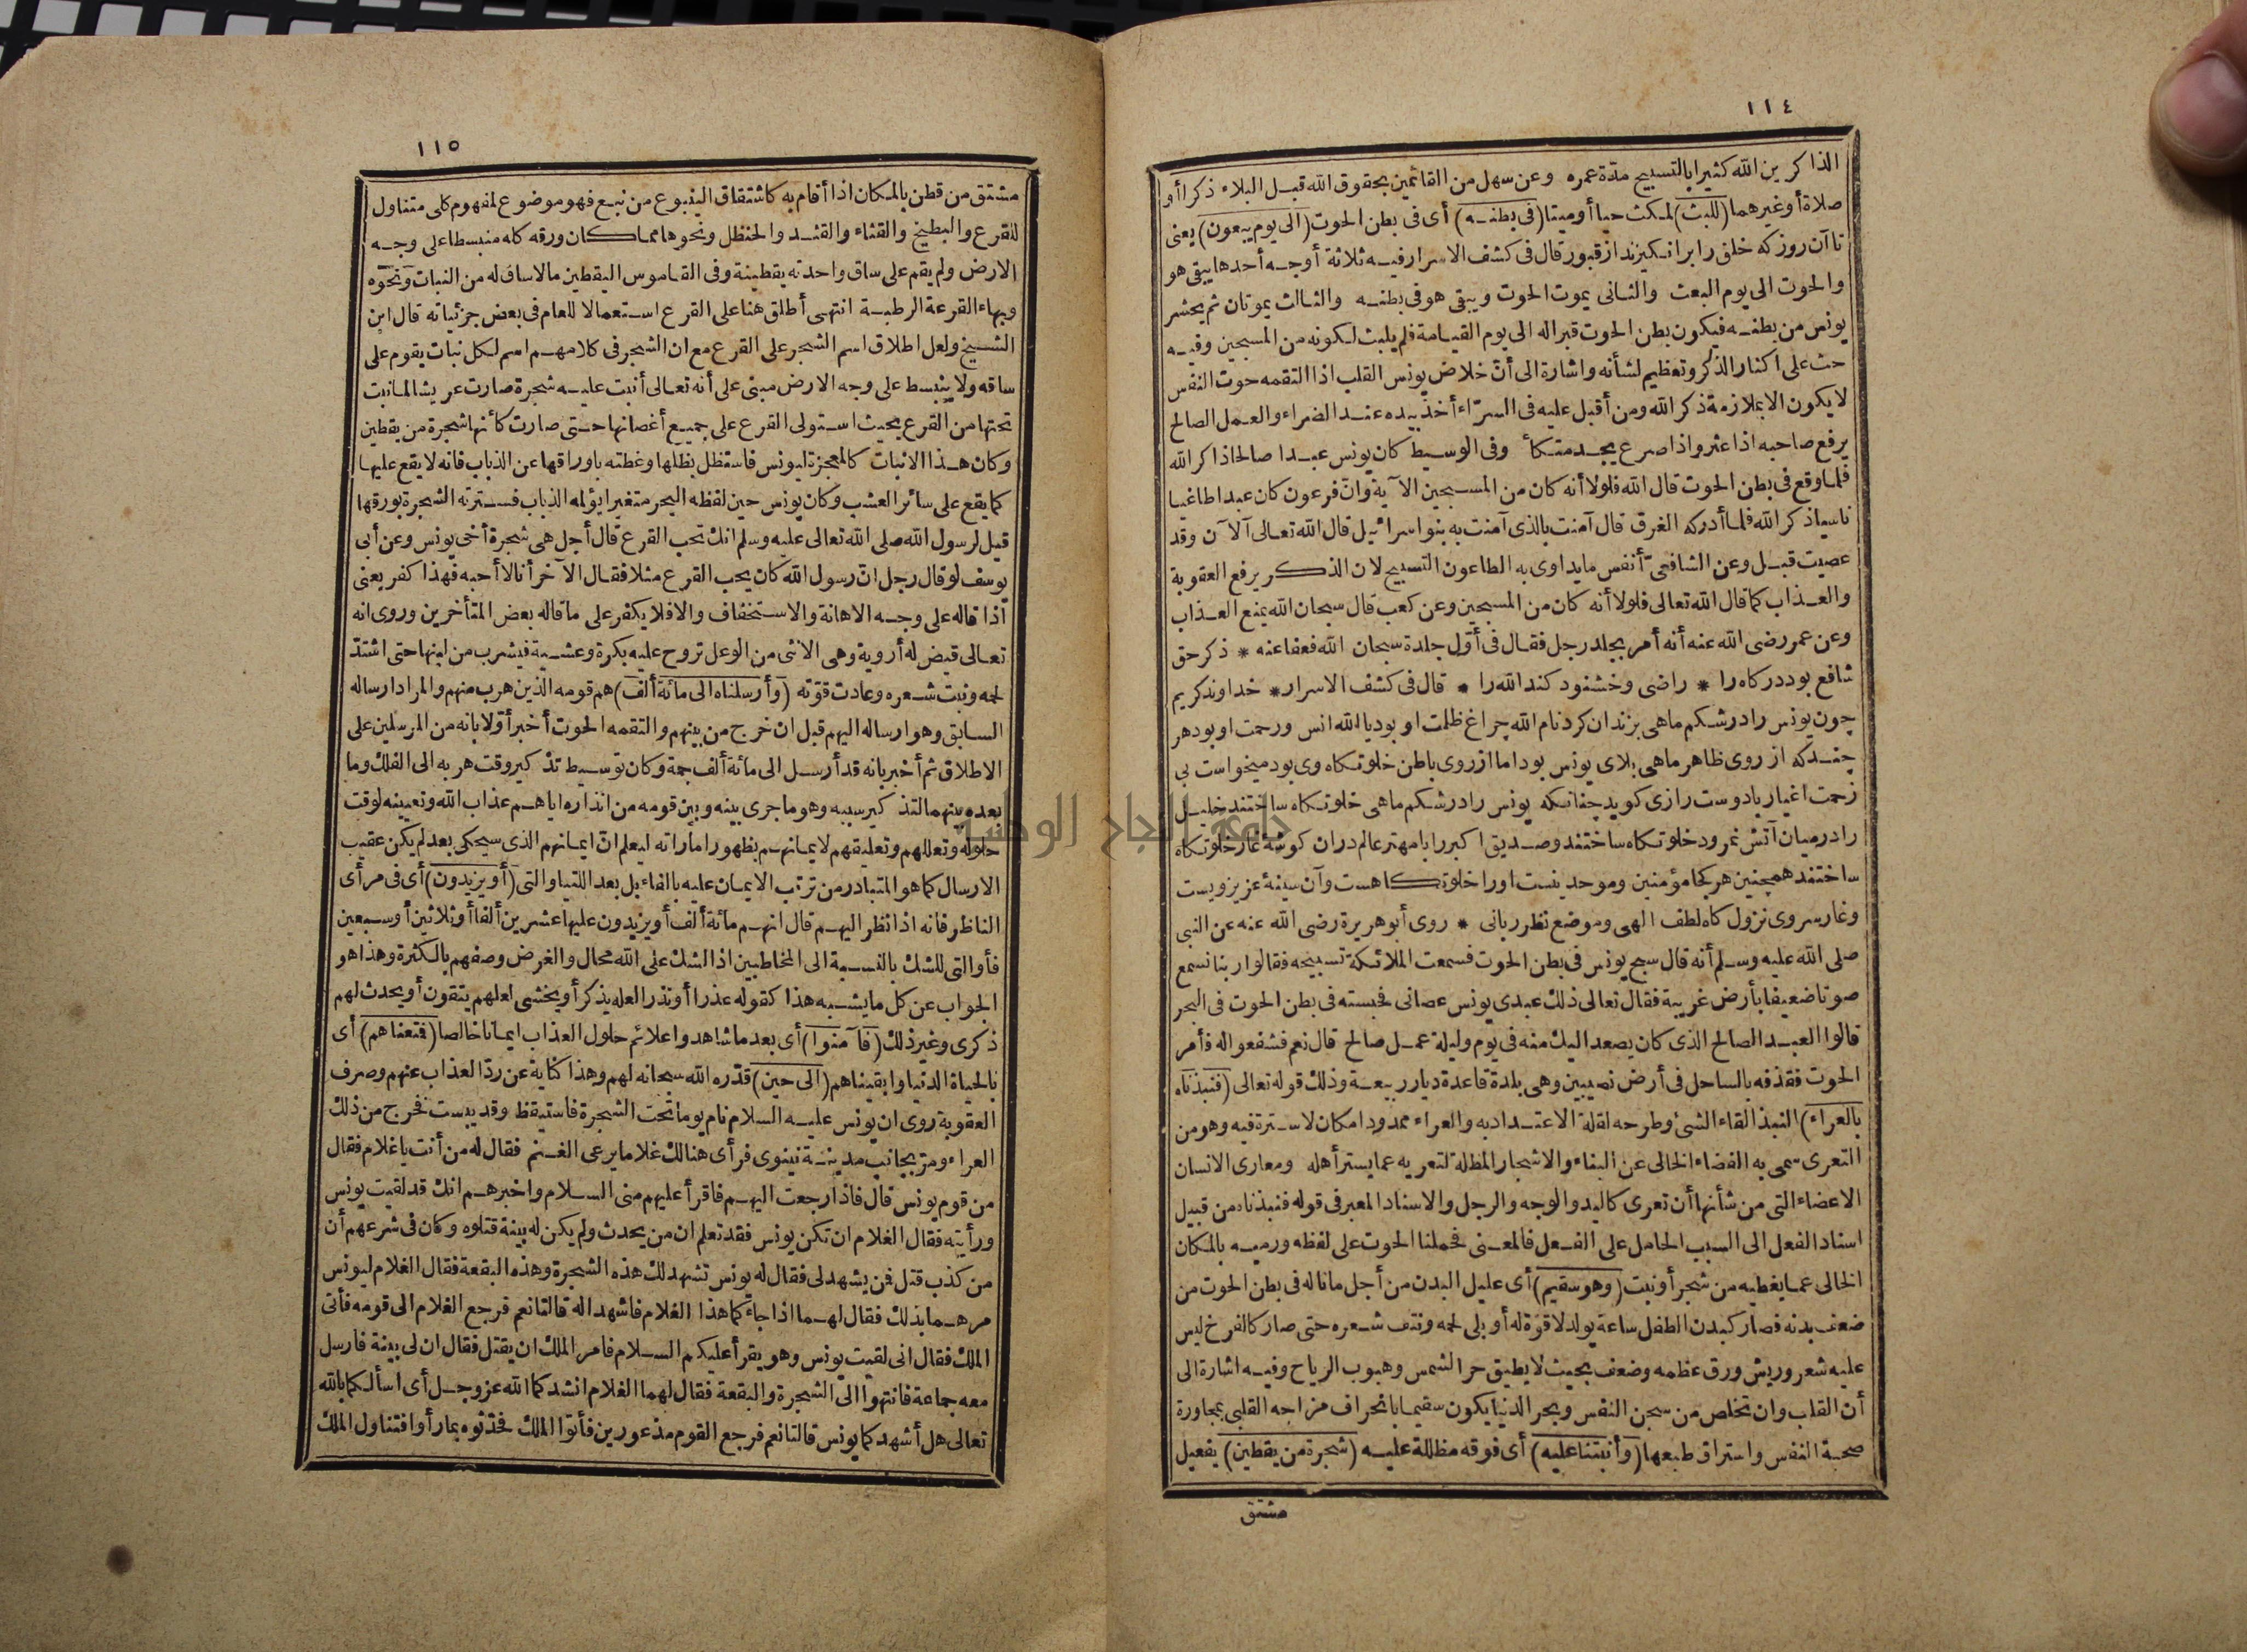 ١١٤
الذاكرين الله كثيرا بالتسبيح مدّة عمره وعن سهل من القائمين بحقوق الله قبل البلاء ذكرا أو
صلاة أو غيرهما (للبث) لمكث حيا أو ميتا (فى بطنه) أى فى بطن الحوت (الى يوم يبعثون) يعنى
تا آن روز كه خلق را برانكيزند از قبور قال فى كشف الاسرار فيه ثلاثة أوجه أحدها يبقى هو
والحوت الى يوم البعث والثانى يموت الحوت ويبقى هو فى بطنه والثالث يموتان ثم يحشر
يونس من بطنه فيكون بطن الحوت قبرا له الى يوم القيامة فلم يلبث لكونه من المسبحين وفيه
حث على اكثار الذكر وتعظيم لشأنه واشارة الى أنّ خلاص يونس القلب اذا التقمه حوت النفس
لا يكون الا بملازمة ذكر الله ومن أقبل عليه فى السرّاء أخذ بيده عند الضراء والعمل الصالح
يرفع صاحبه اذا عثر واذا صرع يجد متكأ وفى الوسيط كان يونس عبدا صالحا ذاكر الله
فلما وقع فى بطن الحوت قال الله فلولا أنه كان من المسبحين الآية وانّ فرعون كان عبدا طاغيا
ناسيا ذكر الله فلما أدركه الغرق قال آمنت بالذى آمنت به بنو اسرائيل قال الله تعالى آلآن وقد
عصيت قبل وعن الشافعىّ أنفس ما يداوى به الطاعون التسبيح لان الذكر يرفع العقوبة
والعذاب كما قال الله تعالى فلولا أنه كان من المسبحين وعن كعب قال سبحان الله يمنع العذاب
وعن عمر رضى الله عنه أنه أمر بجلد رجل فقال فى أوّل جلدة سبحان الله فعفا عنه * ذكر حق
شافع بود دركاه را * راضى وخشنود كند الله را * قال فى كشف الاسرار * خداوند كريم
چون يونس را در شكم ماهى بزندان كرد نام الله چراغ ظلمت او بود يا الله انس ورحمت او بود هر
چند كه از روى ظاهر ماهى بلاى يونس بود اما از روى باطن خلوتكاه وى بود ميخواست بى
زحمت اغيار با دوست رازى كويد چنانكه يونس را در شكم ماهى خلوتكاه ساختند خليل
را در ميان آتش نمرود خلوتكاه ساختند وصديق اكبر را با مهتر عالم در ان كوشهٔ غار خلوتكاه
ساختند همچنين هر كجا مؤمنين وموحديست اورا خلوتكاهست وآن سينهٔ عزيز ويست
وغار سروى نزول كاه لطف الهى وموضع نظر ربانى * روى أبو هريرة رضى الله عنه عن النبى
صلى الله عليه وسلم أنه قال سبح يونس فى بطن الحوت فسمعت الملائكة تسبيحه فقالوا ربنا نسمع
صوتا ضعيفا بأرض غريبة فقال تعالى ذلك عبدى يونس عصانى فحبسته فى بطن الحوت فى البحر
قالوا العبد الصالح الذى كان يصعد اليك منه فى يوم وليلة عمل صالح قال نعم فشفعوا له فأمر
الحوت فقذفه بالساحل فى أرض نصيبين وهى بلدة قاعدة ديار ربيعة وذلك قوله تعالى (فنبذناه
بالعراء) النبذ القاء الشئ وطرحه لقلة الاعتداد به والعراء ممدودا مكان لا سترة فيه وهو من
التعرى سمى به الفضاء الخالى عن البناء والاشجار المظلة لتعريه عما يستر أهله ومعارى الانسان
الاعضاء التى من شأنها أن تعرى كاليد والوجه والرجل والاسناد المعبر فى قوله فنبذناه من قبيل
اسناد الفعل الى السبب الحامل على الفعل فالمعنى فحملنا الحوت على لفظه ورميه بالمكان
الخالى عما يغطيه من شجر أو نبت (وهو سقيم) أى عليل البدن من أجل ما ناله فى بطن الحوت من
ضعف بدنه فصار كبدن الطفل ساعة يولد لا قوّة له أو بلى لحمه ونتف شعره حتى صار كالفرخ ليس
عليه شعر وريش ورق عظمه وضعف بحيث لا يطيق حر الشمس وهبوب الرياح وفيه اشارة الى
أن القلب وان تخلص من سجن النفس وبحر الدنيا يكون سقيما بانحراف مزاجه القلبى بمجاورة
صحبة النفس واستراق طبعها (وأنبتنا عليه) أى فوقه مظللة عليه (شجرة من يقطين) يفعيل
مشتق
١١٥
مشتق من قطن بالمكان اذا أقام به كاشتقاق الينبوع من نبع فهو موضوع لمفهوم كلى متناول
للقرع والبطيخ والقثاء والقثد والحنظل ونحوها مما كان ورقه كله منبسطا على وجه
الارض ولم يقم على ساق واحدته يقطينة وفى القاموس اليقطين ما لا ساق له من النبات ونحوه
وبهاء القرعة الرطبة انتهى أطلق هنا على القرع استعمالا للعام فى بعض جزئياته قال ابن
الشيخ ولعل اطلاق اسم الشجر على القرع مع ان الشجر فى كلامهم اسم لكل نبات يقوم على
ساقه ولا ينبسط على وجه الارض مبنى على أنه تعالى أنبت عليه شجرة صارت عريشا لما نبت
تحتها من القرع بحيث استولى القرع على جميع أغصانها حتى صارت كأنها شجرة من يقطين
وكان هذا الانبات كالمعجزة ليونس فاستظل بظلها وغطته باوراقها عن الذباب فانه لا يقع عليها
كما يقع على سائر العشب وكان يونس حين لفظه البحر متغيرا يؤلمه الذباب فسترته الشجرة بورقها
قيل لرسول الله صلى الله تعالى عليه وسلم انك تحب القرع قال أجل هى شجرة أخى يونس وعن أبى
يوسف لو قال رجل انّ رسول الله كان يحب القرع مثلا فقال الآخر أنا لا أحبه فهذا كفر يعنى
اذا قاله على وجه الاهانة والاستخفاف والا فلا يكفر على ما قاله بعض المتأخرين وروى انه
تعالى قيض له أروية وهى الانثى من الوعل تروح عليه بكرة وعشية فيشرب من لبنها حتى اشتدّ
لحمه ونبت شعره وعادت قوّته (وأرسلناه الى مائة ألف) هم قومه الذين هرب منهم والمراد ارساله
السابق وهو ارساله اليهم قبل ان خرج من بينهم والتقمه الحوت أخبر أوّلا بانه من المرسلين على
الاطلاق ثم أخبر بانه قد أرسل الى مائة ألف جمة وكان توسيط تذكير وقت هربه الى الفلك وما
بعده بينهما لتذكير سببه وهو ما جرى بينه وبين قومه من انذاره اياهم عذاب الله وتعيينه لوقت
حلوله وتعللهم وتعليقهم لايمانهم بظهور اماراته ليعلم انّ ايمانهم الذى سيحكى بعد لم يكن عقيب
الارسال كما هو المتبادر من ترتب الايمان عليه بالفاء بل بعد اللتيا والتى (أو يزيدون) أى فى مرأى
الناظر فانه اذا نظر اليهم قال انهم مائة ألف أو يزيدون عليها عشرين ألفا أو ثلاثين أو سبعين
فأو التى للشك بالنسبة الى المخاطبين اذ الشك على الله محال والغرض وصفهم بالكثرة وهذا هو
الجواب عن كل ما يشبه هذا كقوله عذرا أو نذرا لعله يذكر أو يخشى لعلهم يتقون أو يحدث لهم
ذكرى وغير ذلك (فآمنوا) أى بعد ما شاهدوا علائم حلول العذاب ايمانا خالصا (فمتعناهم) أى
بالحياة الدنيا وابقيناهم (الى حين) قدّره الله سبحانه لهم وهذا كناية عن ردّ العذاب عنهم وصرف
العقوبة روى ان يونس عليه السلام نام يوما تحت الشجرة فاستيقظ وقد يبست فخرج من ذلك
العراء ومرّ بجانب مدينة نينوى فرأى هنالك غلاما يرعى الغنم فقال له من أنت يا غلام فقال
من قوم يونس قال فاذا رجعت اليهم فاقرأ عليهم منى السلام واخبرهم انك قد لقيت يونس
ورأيته فقال الغلام ان تكن يونس فقد تعلم ان من يحدث ولم يكن له بينة قتلوه وكان فى شرعهم أن
من كذب قتل فمن يشهد لى فقال له يونس تشهد لك هذه الشجرة وهذه البقعة فقال الغلام ليونس
مرهما بذلك فقال لهما اذا جاءكما هذا الغلام فاشهدا له قالتا نعم فرجع الغلام الى قومه فأتى
الملك فقال انى لقيت يونس وهو يقرأ عليكم السلام فامر الملك ان يقتل فقال ان لى بينة فارسل
معه جماعة فانتهوا الى الشجرة والبقعة فقال لهما الغلام انشدكما الله عز وجل أى اسألكما بالله
تعالى هل أشهدكما يونس قالتا نعم فرجع القوم مذعورين فأتوا الملك فحدّثوه بما رأوا فتناول الملك